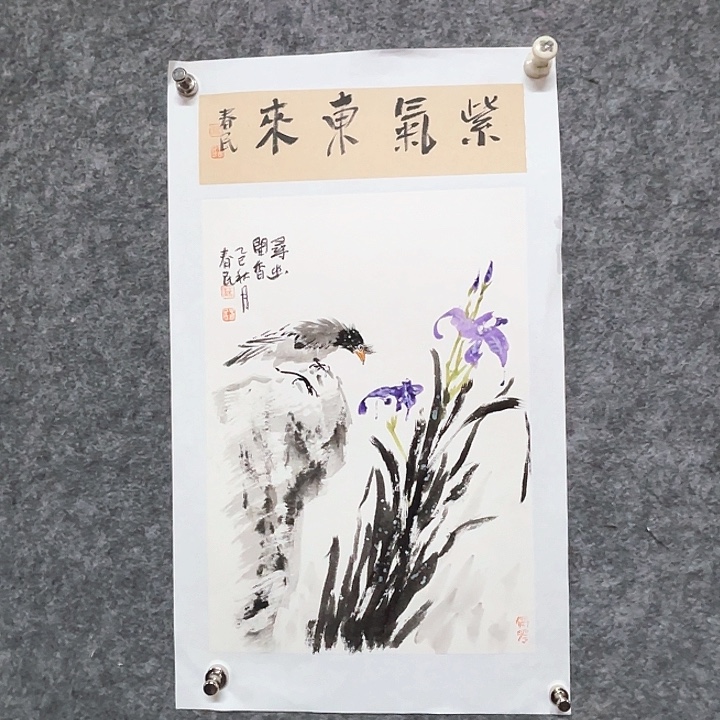 紫氣東來
春民
尋幽
聞香
乙巳秋月
春民